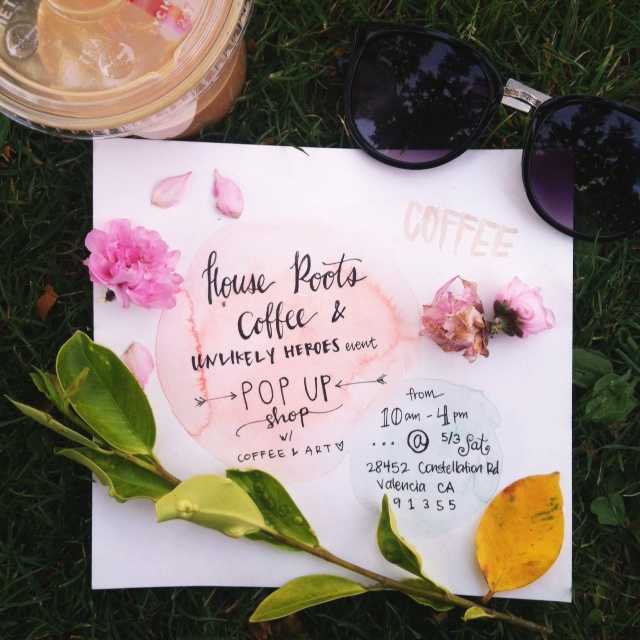 COFFEE
House Roots
Coffee &
UNLIKELY HEROES event
POP UP
shop
w/
COFFEE & ART♡
from
10am - 4pm
... @ 5/3 Sat
28452 Constellation Rd
Valencia CA
91355